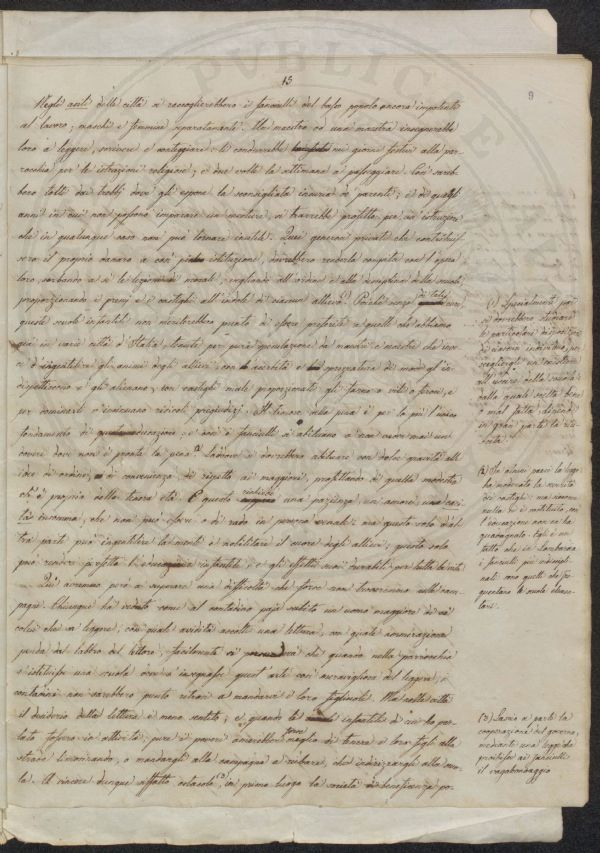 15
9
Negli asili delle città si raccoglierebbero i fanciulli del basso popolo ancora impotenti
al lavoro; maschi e femmine separatamente. Un maestro od una maestra insegnerebbe
loro a leggere, scrivere e conteggiare: li condurrebbe ne' giorni festivi alla par-
rocchia per le istruzioni religiose; e due volte la settimana a passeggiare. Così sareb-
bero tolti dai trebbj dove gli espone la sconsigliata incuria de' parenti; e di quegli
anni in cui non possono imparare un mestiere, si trarrebbe profitto per un'istruzion
che in qualunque caso non può tornare inutile. Quei generosi privati che contribuis-
sero il proprio danaro a così istituzione, dovrebbero renderla compita con l'opera
loro, serbando a sè le lezioni morali, vegliando all'ordine e alla disciplina della scuola
proporzionando i premj e i castighi all'indole di ciascun allievo. Poichè senza di tali cure
queste scuole infantili non meriterebbero punto di essere preferite a quelle che abbiamo
già in varie città d'Italia, tenute per pura speculazione da maestri e maestre che inve-
ce d'ingentilire gli animi degli allievi, con la acerbità e sprezzatura di modi gl'in-
dispettiscono e gli alienano, con castighi male proporzionati gli fanno o vili o feroci, e
per dominarli insinuano ridicoli pregiudizj. Il timore della pena è per lo più l'unico
fondamento di educazione; e così i fanciulli si abituano a non veder mai un
dovere dove non è pronta la pena. Laddove si dovrebbero abituare con dolce gravità all'
idee di ordine, di convenienza, di rispetto ai maggiori, profittando di quella modestia
ch'è propria della tenera età. E questo richiede una pazienza, un amore, una cari-
tà insomma, che non può essere o di rado in precetti venali: ma questo solo d'al-
tra parte può ingentilire la mente e nobilitare il cuore degli allievi; questo solo
può rendere perfetta l'educazione infantile, e gli effetti suoi durabili per tutta la vita.
Qui avremmo però a superare una difficoltà che forse non troveremmo nelle cam-
pagne. Chiunque ha veduto come al contadino paja subito un uomo maggiore di sè
colui che sa leggere; con quale avidità ascolti una lettura, con quale ammirazione
penda dal labbro del lettore, facilmente si persuaderà che quando nella parrocchia
si istituisse una scuola dove s'insegnasse quest'arte così meravigliosa del leggere, i
contadini non sarebbero punto ritrosi a mandarvi i loro figliuoli. Ma nelle città
il desiderio della lettura è meno sentito; e quando le scuole infantili di cui ho par-
lato fossero in attività, pure i poveri amerebbero forse meglio di tenere i loro figli alla
strada limosinando, o mandargli alla campagna a rubare, che indirizzargli alla scuo-
la. A vincere dunque siffatto ostacolo, in primo luogo la società di beneficenza po-
(1) Specialmente poi
si dovrebbero studiare
le particolari disposizioni
di ciascun individuo, per
scegliergli un mestiere
all'uscire della scuola:
dalla quale scelta bene
o mal fatta, dipende
in gran parte la riu-
scita.
(2) In alcuni paesi la legge
ha moderata la severità
dei castighi: ma siccome
nulla vi è sostituito, così
l'educazione non ne ha
guadagnato. Tal è in
fatto che in Lombardia
i fanciulli più indiscipli-
nati sono quelli che fre-
quentano le scuole elemen-
tari.
(3) Lascio a parte la
cooperazione del governo,
mediante una legge che
proibisse ai fanciulli
il vagabondaggio